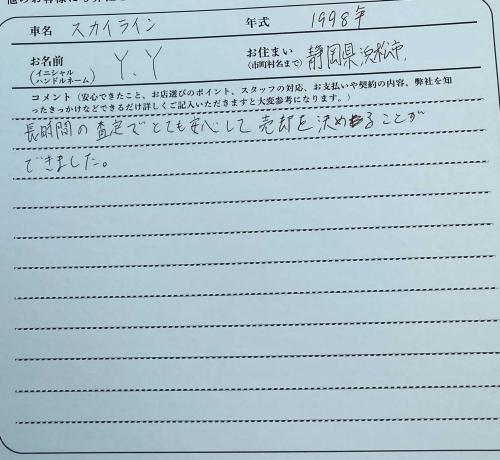 車名 スカイライン 年式 1998年
お名前 (イニシャル ハンドルネーム) Y.Y お住まい (市町村名まで) 静岡県浜松市.
コメント(安心できたこと、お店選びのポイント、スタッフの対応、お支払いや契約の内容、弊社を知
ったきっかけなどできるだけ詳しくご記入いただきますと大変参考になります。)
長時間の査定でとても安心して売却を決めることが
できました。